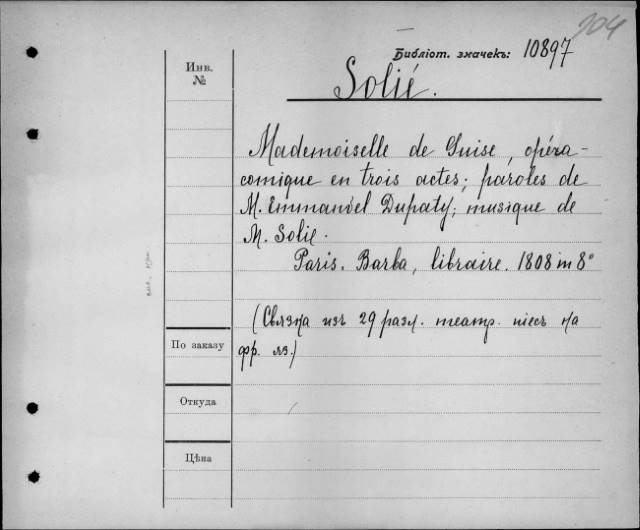 204
Библіот. значекъ: 10897
Инв.
№
Solié.
Mademoiselle de Guise, opéra-
comique en trois actes; paroles de
M. Emmanuel Dupaty; musique de
M. Solié.
Paris. Barba, libraire. 1808 in 8°
(Связка изъ 29 разл. театр. пiесъ на
фр. яз.)
По заказу
Откуда
Цѣна